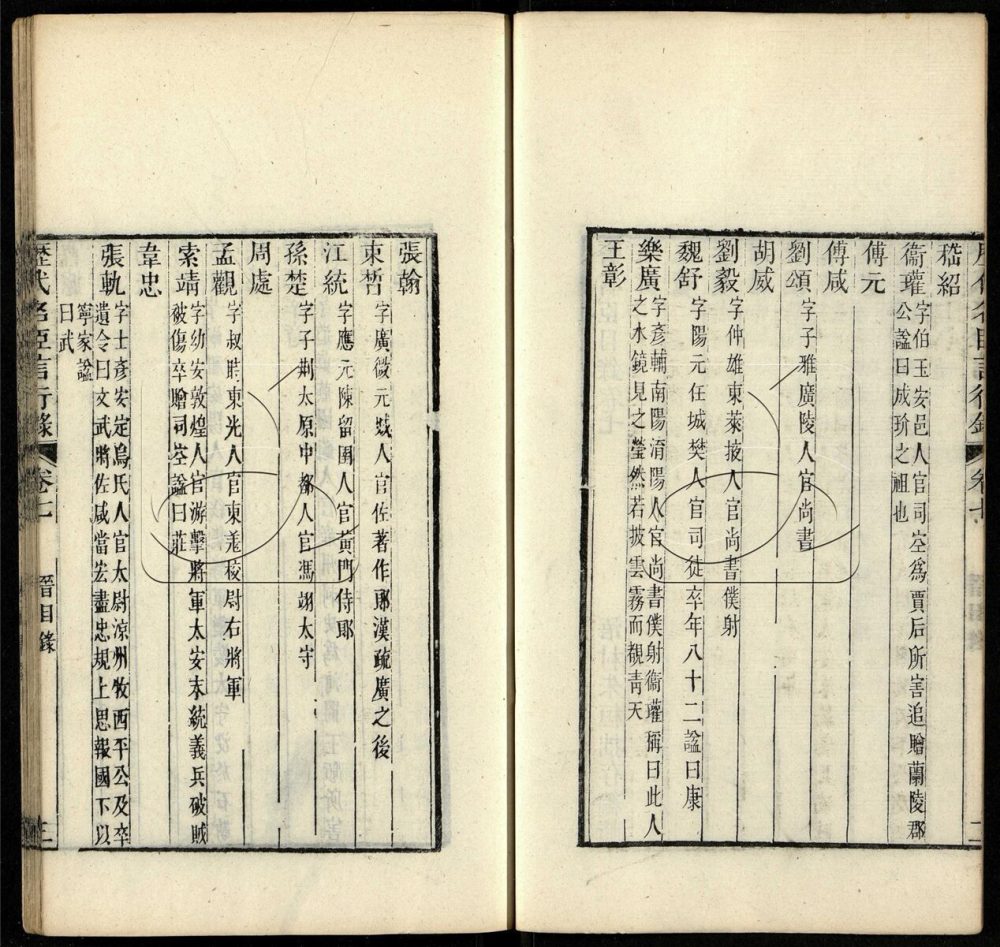 歷代名臣言行錄 卷七 二
嵇紹
衞瓘 字伯玉安邑人官司空爲賈后所害追贈蘭陵郡
公謚曰成玠之祖也
傅元
傅咸
劉頌 字子雅廣陵人官尚書
胡威
劉毅 字仲雄東萊掖人官尚書僕射
魏舒 字陽元任城樊人官司徒卒年八十二謚曰康
樂廣 字彥輔南陽淯陽人官尚書僕射衞瓘稱曰此人
之水鏡見之瑩然若披雲霧而覩青天
王彰
張翰
束晳 字廣微元城人官佐著作郎漢疏廣之後
江統 字應元陳留圉人官黃門侍郎
孫楚 字子荆太原中都人官馮翊太守
周處
孟觀 字叔時東光人官東羌校尉右將軍
索靖 字幼安敦煌人官游擊將軍太安末統義兵破賊
被傷卒贈司空謚曰莊
韋忠
張軌 字士彥安定烏氏人官太尉涼州牧西平公及卒
遺令曰文武將佐咸當宏盡忠規上思報國下以
寧家謚
曰武
歷代名臣言行錄 卷七 晉目錄 三